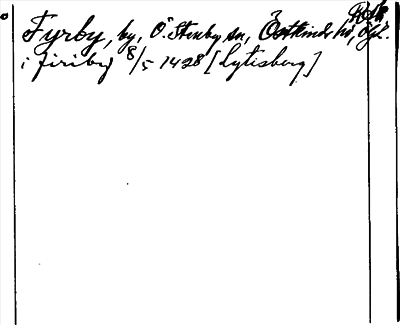 Fyrby, by, Ö. Stenby sn, Östkinds hd, Ögl.
i firiby 8/5 1428 [Lytisberg]